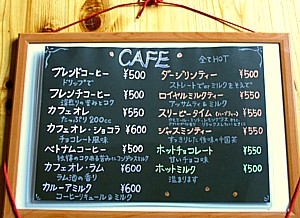 CAFE
全てHOT
ブレンドコーヒー ¥500
ドリップで
フレンチコーヒー ¥500
深煎りの苦みとコク
カフェオレ ¥550
たっぷり200cc
カフェオレ・ショコラ ¥600
チョコレート風味
ベトナムコーヒー ¥500
独特のコクある苦みにコンデンスミルク
カフェオレ・ラム ¥600
ラム酒の香り
カルーアミルク ¥600
コーヒーリキュール＆ミルク
ダージリンティー ¥500
ストレートで or ミルクを添えて
ロイヤルミルクティー ¥550
アッサムティ＆ミルク
スリーピータイム(ハーブティー) ¥550
リラックスしたいひとときに
ジャスミンティー ¥550
すっきりした後味の中国茶
ホットチョコレート ¥550
甘いチョコ味
ホットミルク ¥500
温まります